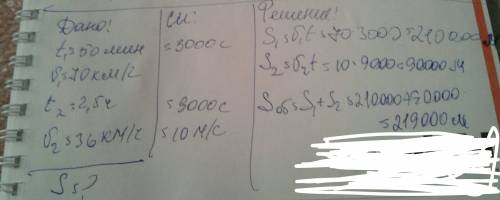 Дано:
t₁=50 мин
υ₁=70 км/ч
t₂=2,5ч
υ₂=36 км/ч
S=?
СИ:
=3000с
=9000с
=10 м/с
Решение:
S₁=υ₁t=70·3000=210000м
S₂=υ₂t=10·9000=90000м
Sоб=S₁+S₂=210000+90000
=219000м